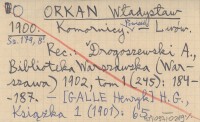 O ORKAN Władysław
1900: Komornicy. Powieść. Lwów.
Ss. 179, 8°
Rec.: Drogoszewski A.,
Biblioteka Warszawska (War-
szawa) 1902, tom 1 (245): 184-
-187. – [GALLE Henryk] H.G.,
Książka 1 (1901): 65